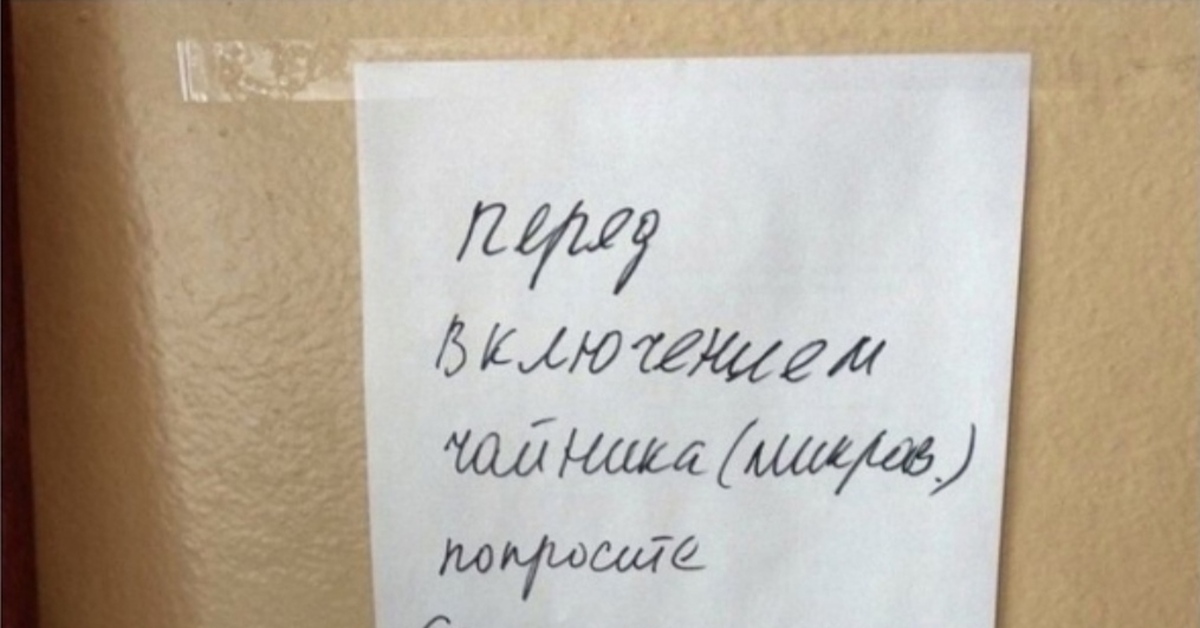 перед
включением
чайника (микров.)
попросите